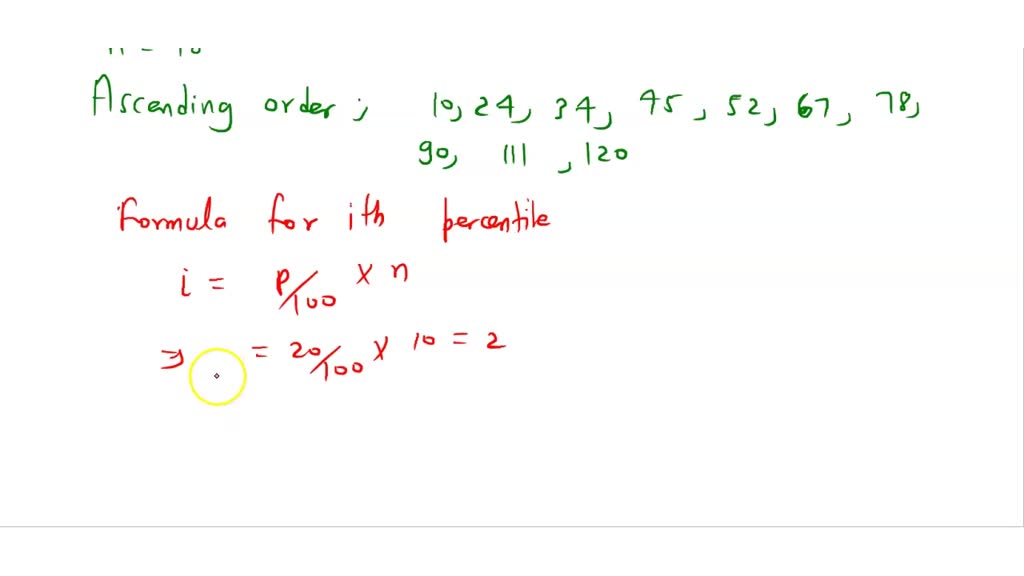 Ascending order; 10, 24, 34, 45, 52, 67, 78,
90, 111, 120
Formula for ith percentile
i = P/100 x n
⇒ = 20/100 x 10 = 2